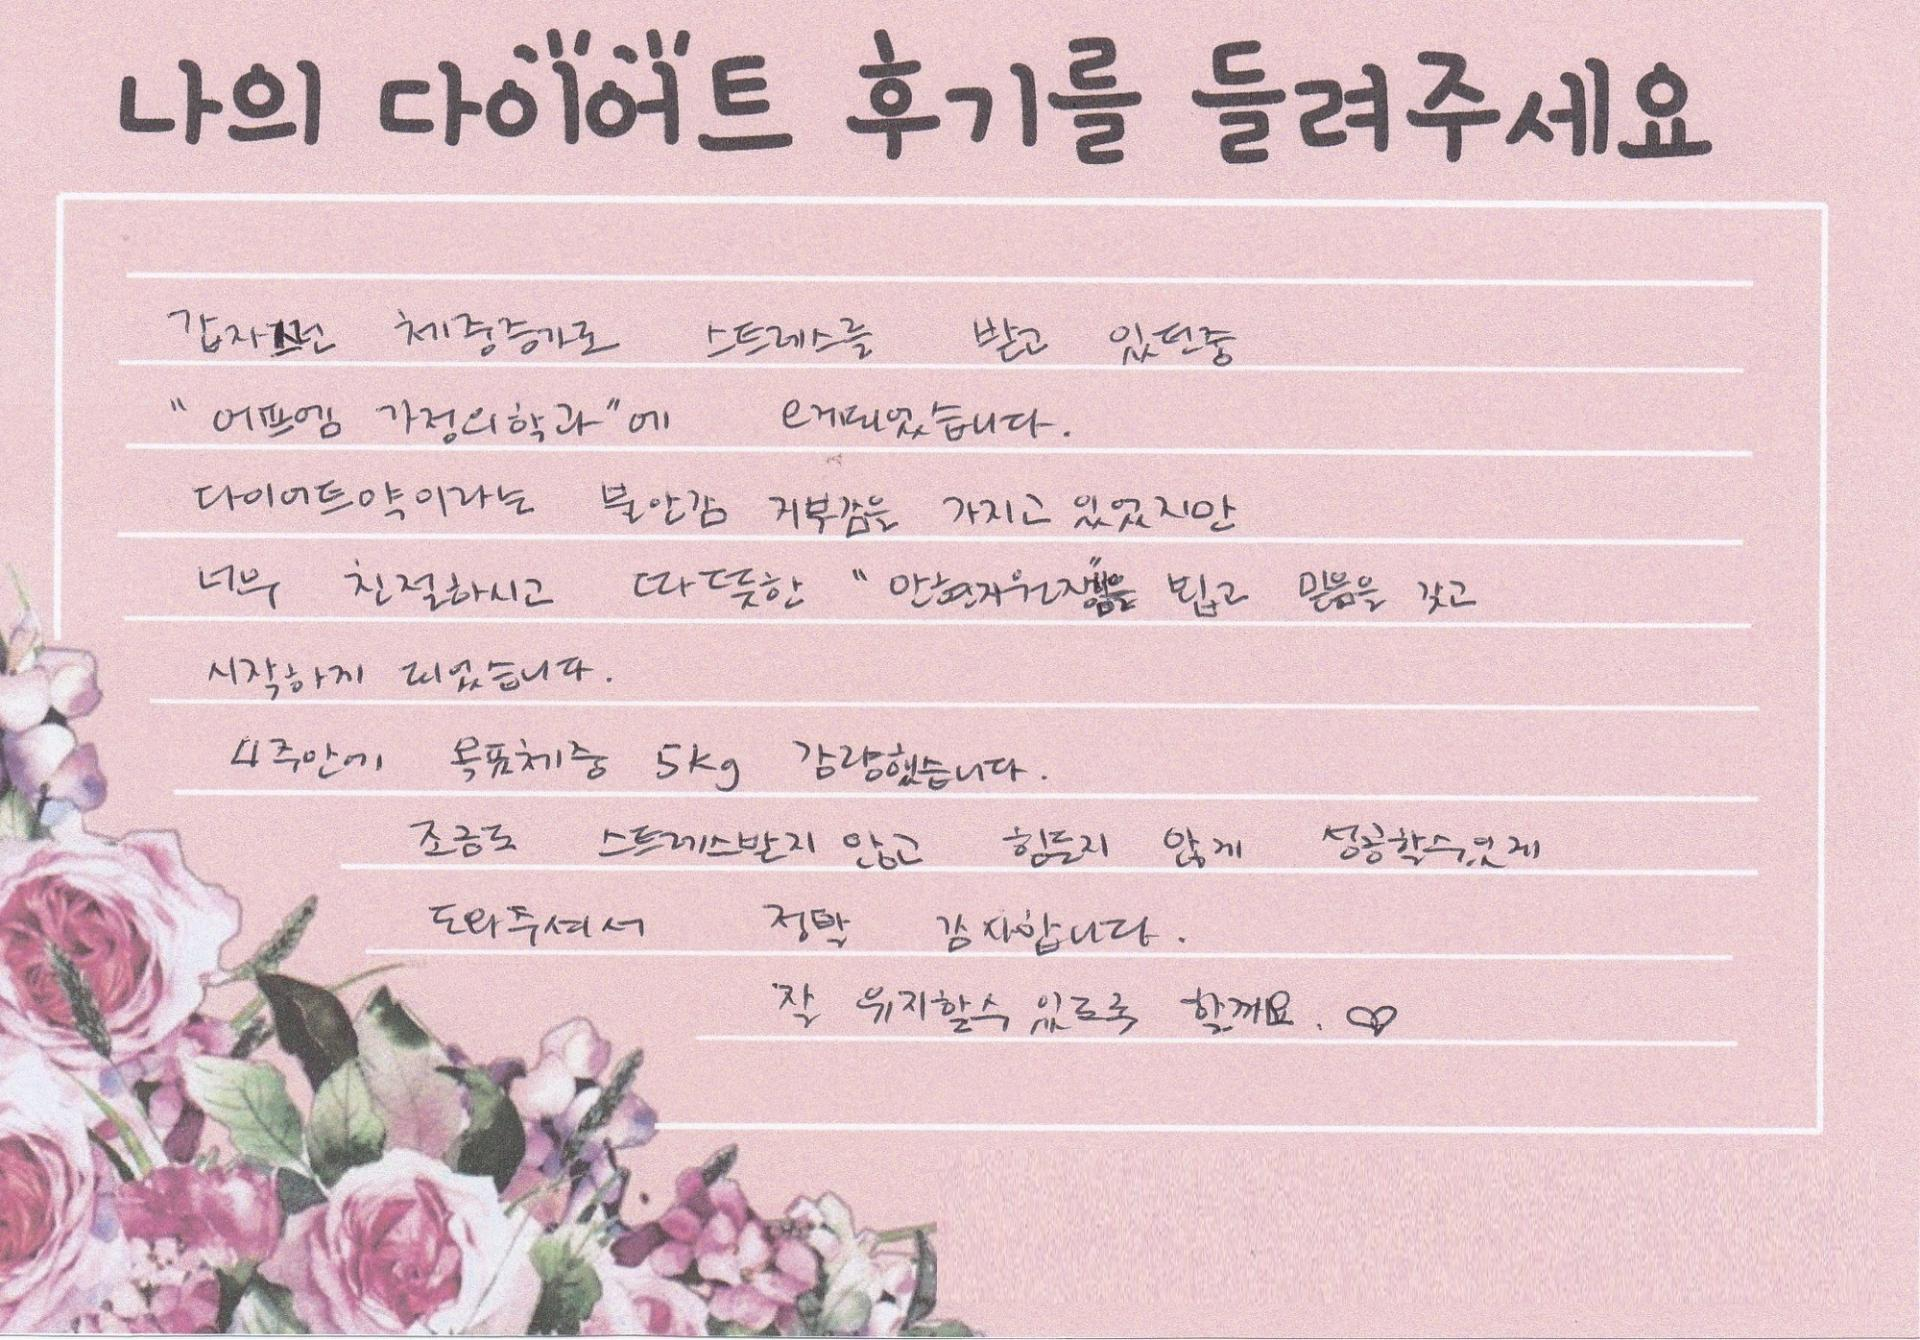 나의 다이어트 후기를 들려주세요
갑자스런 체중증가로 스트레스를 받고 있던중
“어프엠 가정의학과”에 오게되었습니다.
다이어트약이라는 불안감 거부감을 가지고 있었지만
너무 친절하시고 따뜻한 “안현자원장님”을 뵙고 믿음을 갖고
시작하게 되었습니다.
4주안에 목표체중 5kg 감량했습니다.
조금도 스트레스받지 않고 힘들지 않게 성공할수있게
도와주셔서 정말 감사합니다.
잘 유지할수 있도록 할께요. ♡